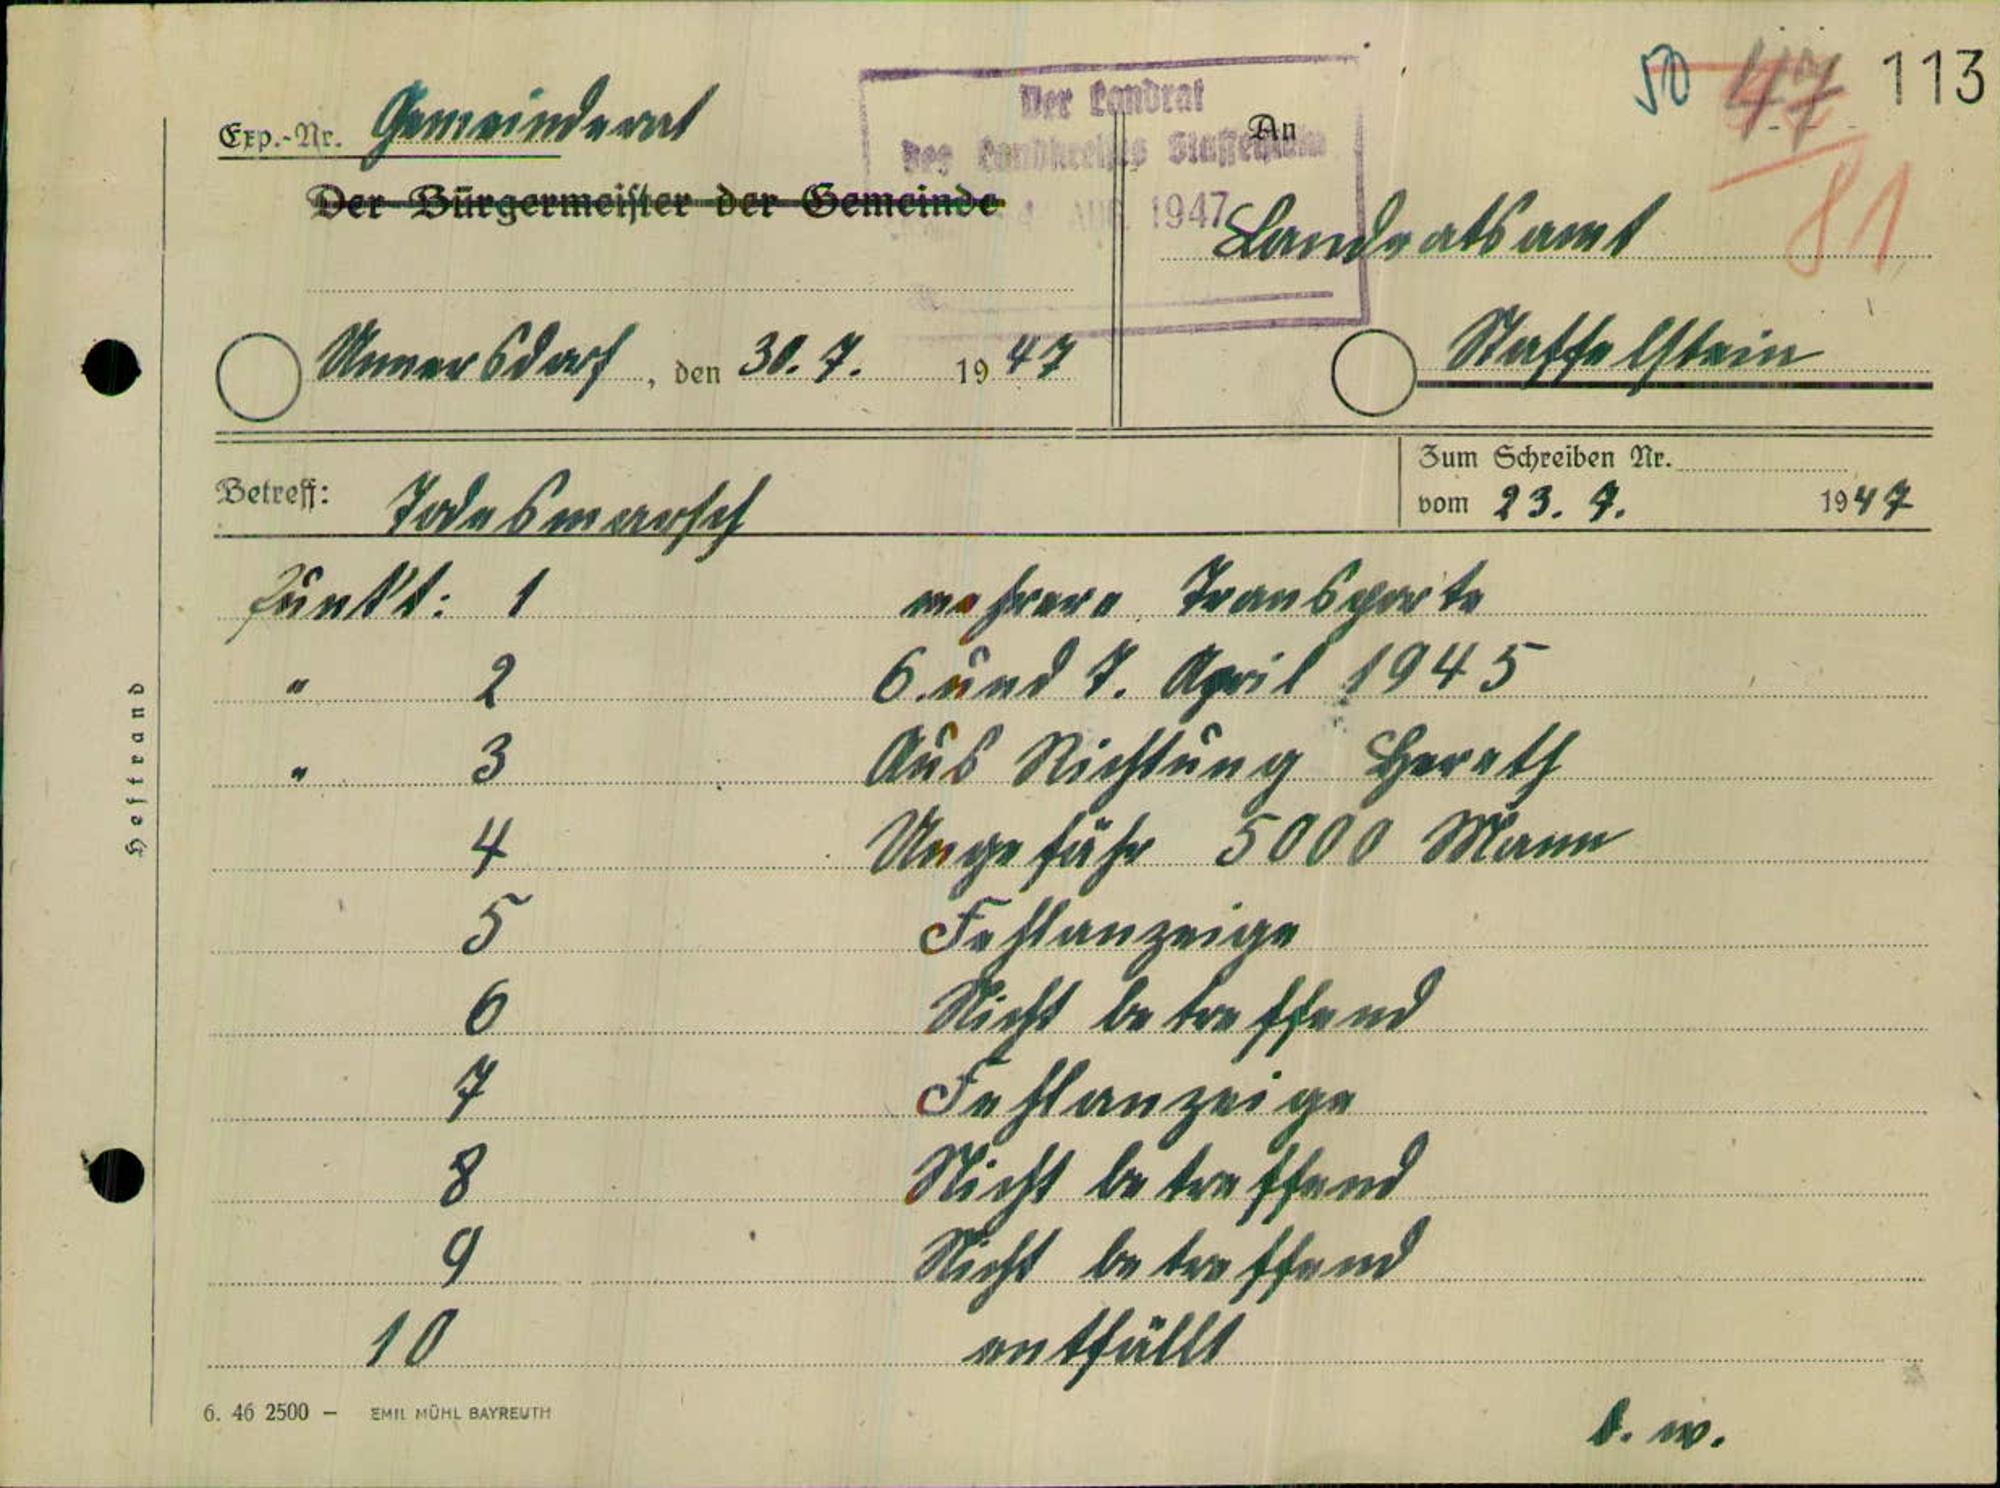 50 47 113
Exp.-Nr. Gemeinderat
Der Landrat
des Landkreises Staffelstein
An
Der Bürgermeister der Gemeinde
4. AUG. 1947
81
Landratsamt
Unnersdorf, den 30. 7. 1947
Staffelstein
Zum Schreiben Nr.
Betreff: Todesmarsch
vom 23. 7. 1947
Punkt: 1 mehrere Transporte
" 2 6. und 7. April 1945
" 3 Aus Richtung Herath
4 Ungefähr 5000 Mann
5 Fehlanzeige
6 Nicht betreffend
7 Fehlanzeige
8 Nicht betreffend
9 Nicht betreffend
10 entfällt
Heftrand
6. 46 2500 — EMIL MÜHL BAYREUTH
b. w.